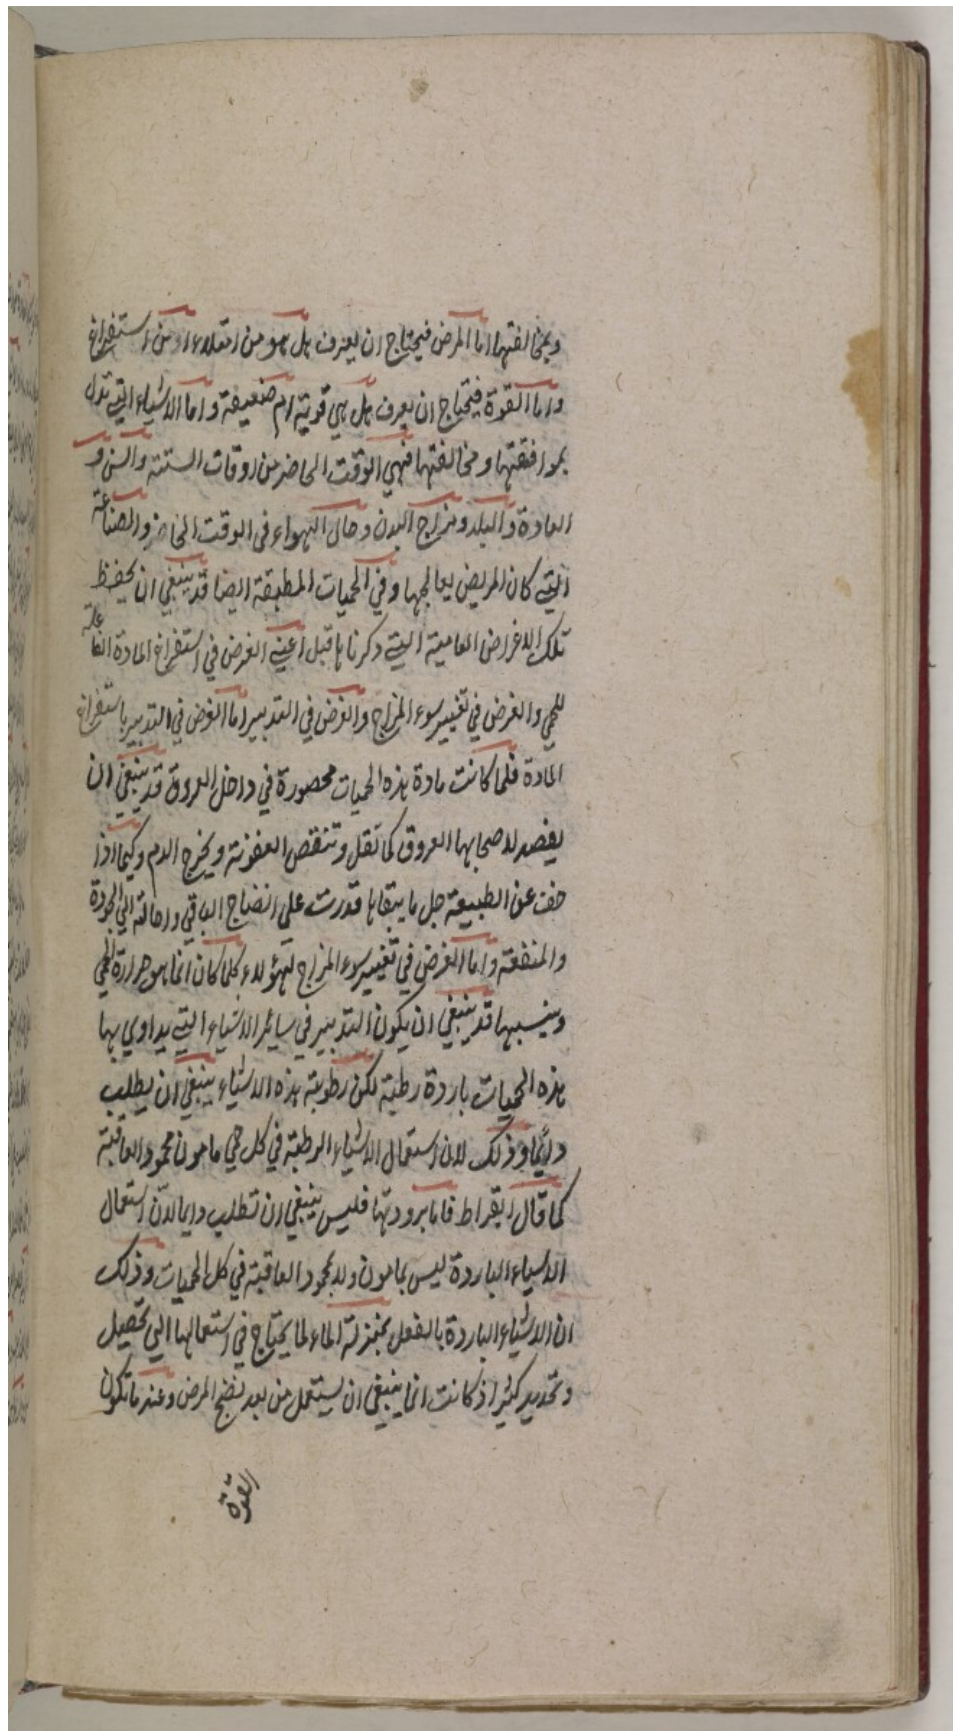 وبمخالفتها اما المرض فيحتاج ان يعرف هل هو من امتلاء او من استفراغ
واما القوة فيحتاج ان يعرف هل هي قوية ام ضعيفة واما الاشياء التي تدل
بموافقتها ومخالفتها فهي الوقت الحاضر من اوقات السنة والسن و
العادة والبلد ومزاج البدن وحال الهواء في الوقت الحاضر والصناعة
التي كان المريض يعالجها وفي الحميات المطبقة ايضا قد ينبغي ان يحفظ
تلك الاغراض العامية التي ذكرناها قبل اعني الغرض في استفراغ المادة الفاعلة
للحمي والغرض في تغيير سوء المزاج والغرض في التدبير اما الغرض في التدبير باستفراغ
المادة فلما كانت مادة هذه الحميات محصورة في داخل العروق قد ينبغي ان
يفصد لاصحابها العروق كما تقل وتنقص العفونة ويخرج الدم وكيما اذا
خف عن الطبيعة جل ما يثقلها قدرت على انضاج الباقي واحالته الي الجودة
والمنفعة واما الغرض في تغيير سوء المزاج لهؤلاء كلما كان انما هو حرارة الحمي
ويبسها قد ينبغي ان يكون التدبير في ساير الاشياء التي يداوي بها
هذه الحميات باردة رطبة لكن رطوبة هذه الاشياء ينبغي ان يطلب
دايما وذلك لان استعمال الاشياء الرطبة في كل حمي مامون محمود العاقبة
كما قال ابقراط فاما برودتها فليس ينبغي ان تطلب دايما لان استعمال
الاشياء الباردة ليس بمامون ولا بمحمود العاقبة في كل الحميات وذلك
ان الاشياء الباردة بالفعل بمنزلة الماء لما يحتاج في استعمالها الي تحصيل
وتحديد كثير اذ كانت انما ينبغي ان يستعمل من بعد نضج المرض وعندما تكون
القوة